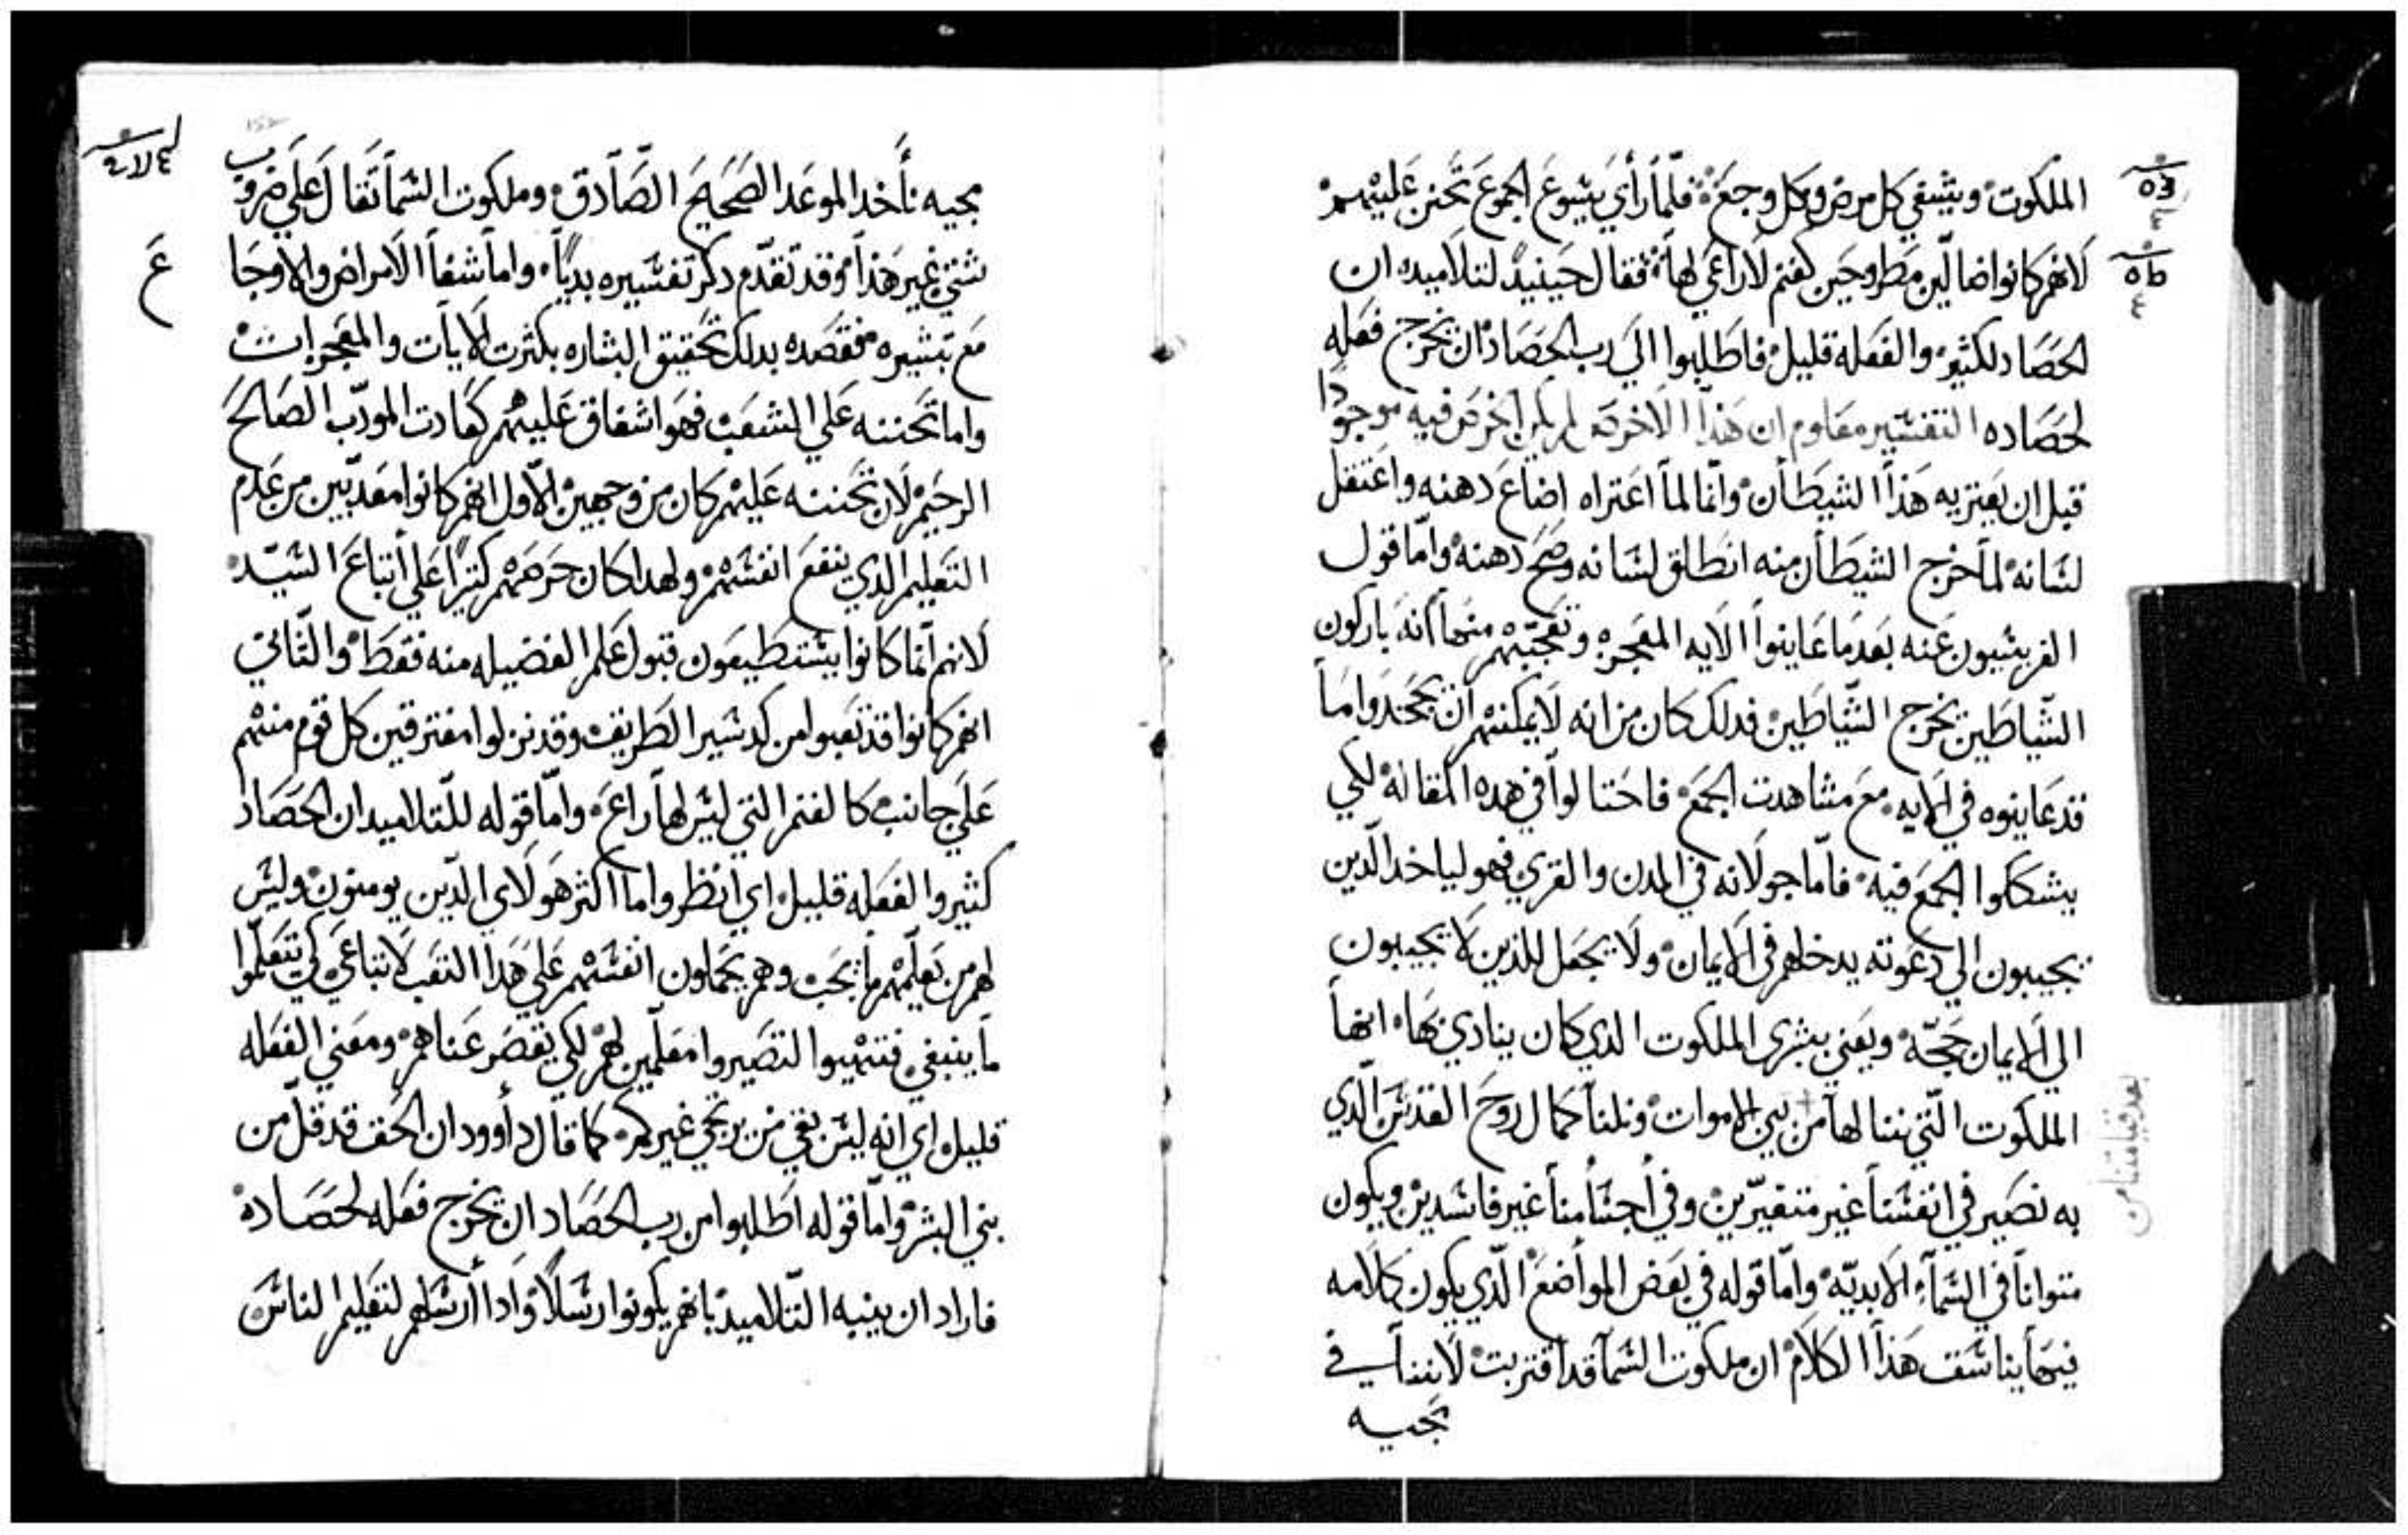 الملكوت ويشفي كل مرض وكل وجع فلما رأي يسوع الجموع تحنن عليهم
لانهم كانوا ضالين مطروحين كغنم لا راعي لها فقال حينيد لتلاميده ان
الحصاد لكثير والفعله قليل فاطلبوا الي رب الحصاد ان يخرج فعله
لحصاده التفسير معلوم ان هذا الاخرص لم يكن الخرص فيه موجودا
قبل ان يعتريه هذا الشيطان وانما لما اعتراه اضاع دهنه واعتقل
لسانه لما خرج الشيطان منه انطلق لسانه وصح دهنه واما قول
الفريسيون عنه بعدما عاينوا الايه المعجزه وتعجبهم منها انه باركون
الشياطين يخرج الشياطين فدلك كان من انه لا يمكنهم ان يجحدوا ما
قد عاينوه في الايه مع مشاهدت الجمع فاحتالوا في هده المقاله لكي
يشككوا الجمع فيه فاما جولانه في المدن والقري فهو لياخد الدين
يجيبون الي دعوته يدخلهم في الايمان ولا يجعل للذين لا يجيبون
الي الايمان حجه ويعني ببشري الملكوت الدي كان ينادي بها انها
الملكوت التي ننالها من بين الاموات ونلنا كمال روح القدس الدي
به نصير في انفسنا غير متغيرين وفي اجسامنا غير فاسدين ويكون
متوانا في السماء الابديه واما قوله في بعض المواضع الدي يكون كلامه
فيها يناسب هذا الكلام ان ملكوت السما قد اقتربت لاننا في
مجيه
بعد قيامتنا من
مجيه نأخد الموعد الصحيح الصادق وملكوت السما تقال علي ضروب
شتي غير هذا وقد تقدم دكر تفسيره بديا واما شفا الامراض والاوجاع
مع تبشيره فقصده بدلك تحقيق البشاره بكثرت الايات والمعجزات
واما تحننه علي الشعب فهو اشفاق عليهم كعادت المودب الصالح
الرحيم لان تحننه عليهم كان من وجهين الاول انهم كانوا معدبين من عدم
التعليم الدي ينفع انفسهم ولهدا كان حرصهم كثيرا علي اتباع السيد
لانهم انما كانوا يستطيعون قبول علم الفضيله منه فقط والتاني
انهم كانوا قد تعبوا من كد سير الطريق وقد نزلوا مفترقين كل قوم منهم
علي جانب كالغنم التي ليس لها راع واما قوله للتلاميد ان الحصاد
كثير والفعله قليل اي انظروا ما اكثر هولاي الدين يومنون وليس
لهم من يعلمهم ما يجب وهم يحملون انفسهم علي هذا التعب لاتباعي كي يتعلموا
ما ينبغي فتنهيوا لتصيروا معلمين لهم لكي يقصر عناهم ومعني الفعله
قليل اي انه ليس بقي من يرتجي غيركم كما قال داوود ان الحق قد قل من
بني البشر واما قوله اطلبوا من رب الحصاد ان يخرج فعله لحصاده
فاراد ان ينبه التلاميد بانهم يكونوا رسلا وادا ارسلهم لتعليم الناس